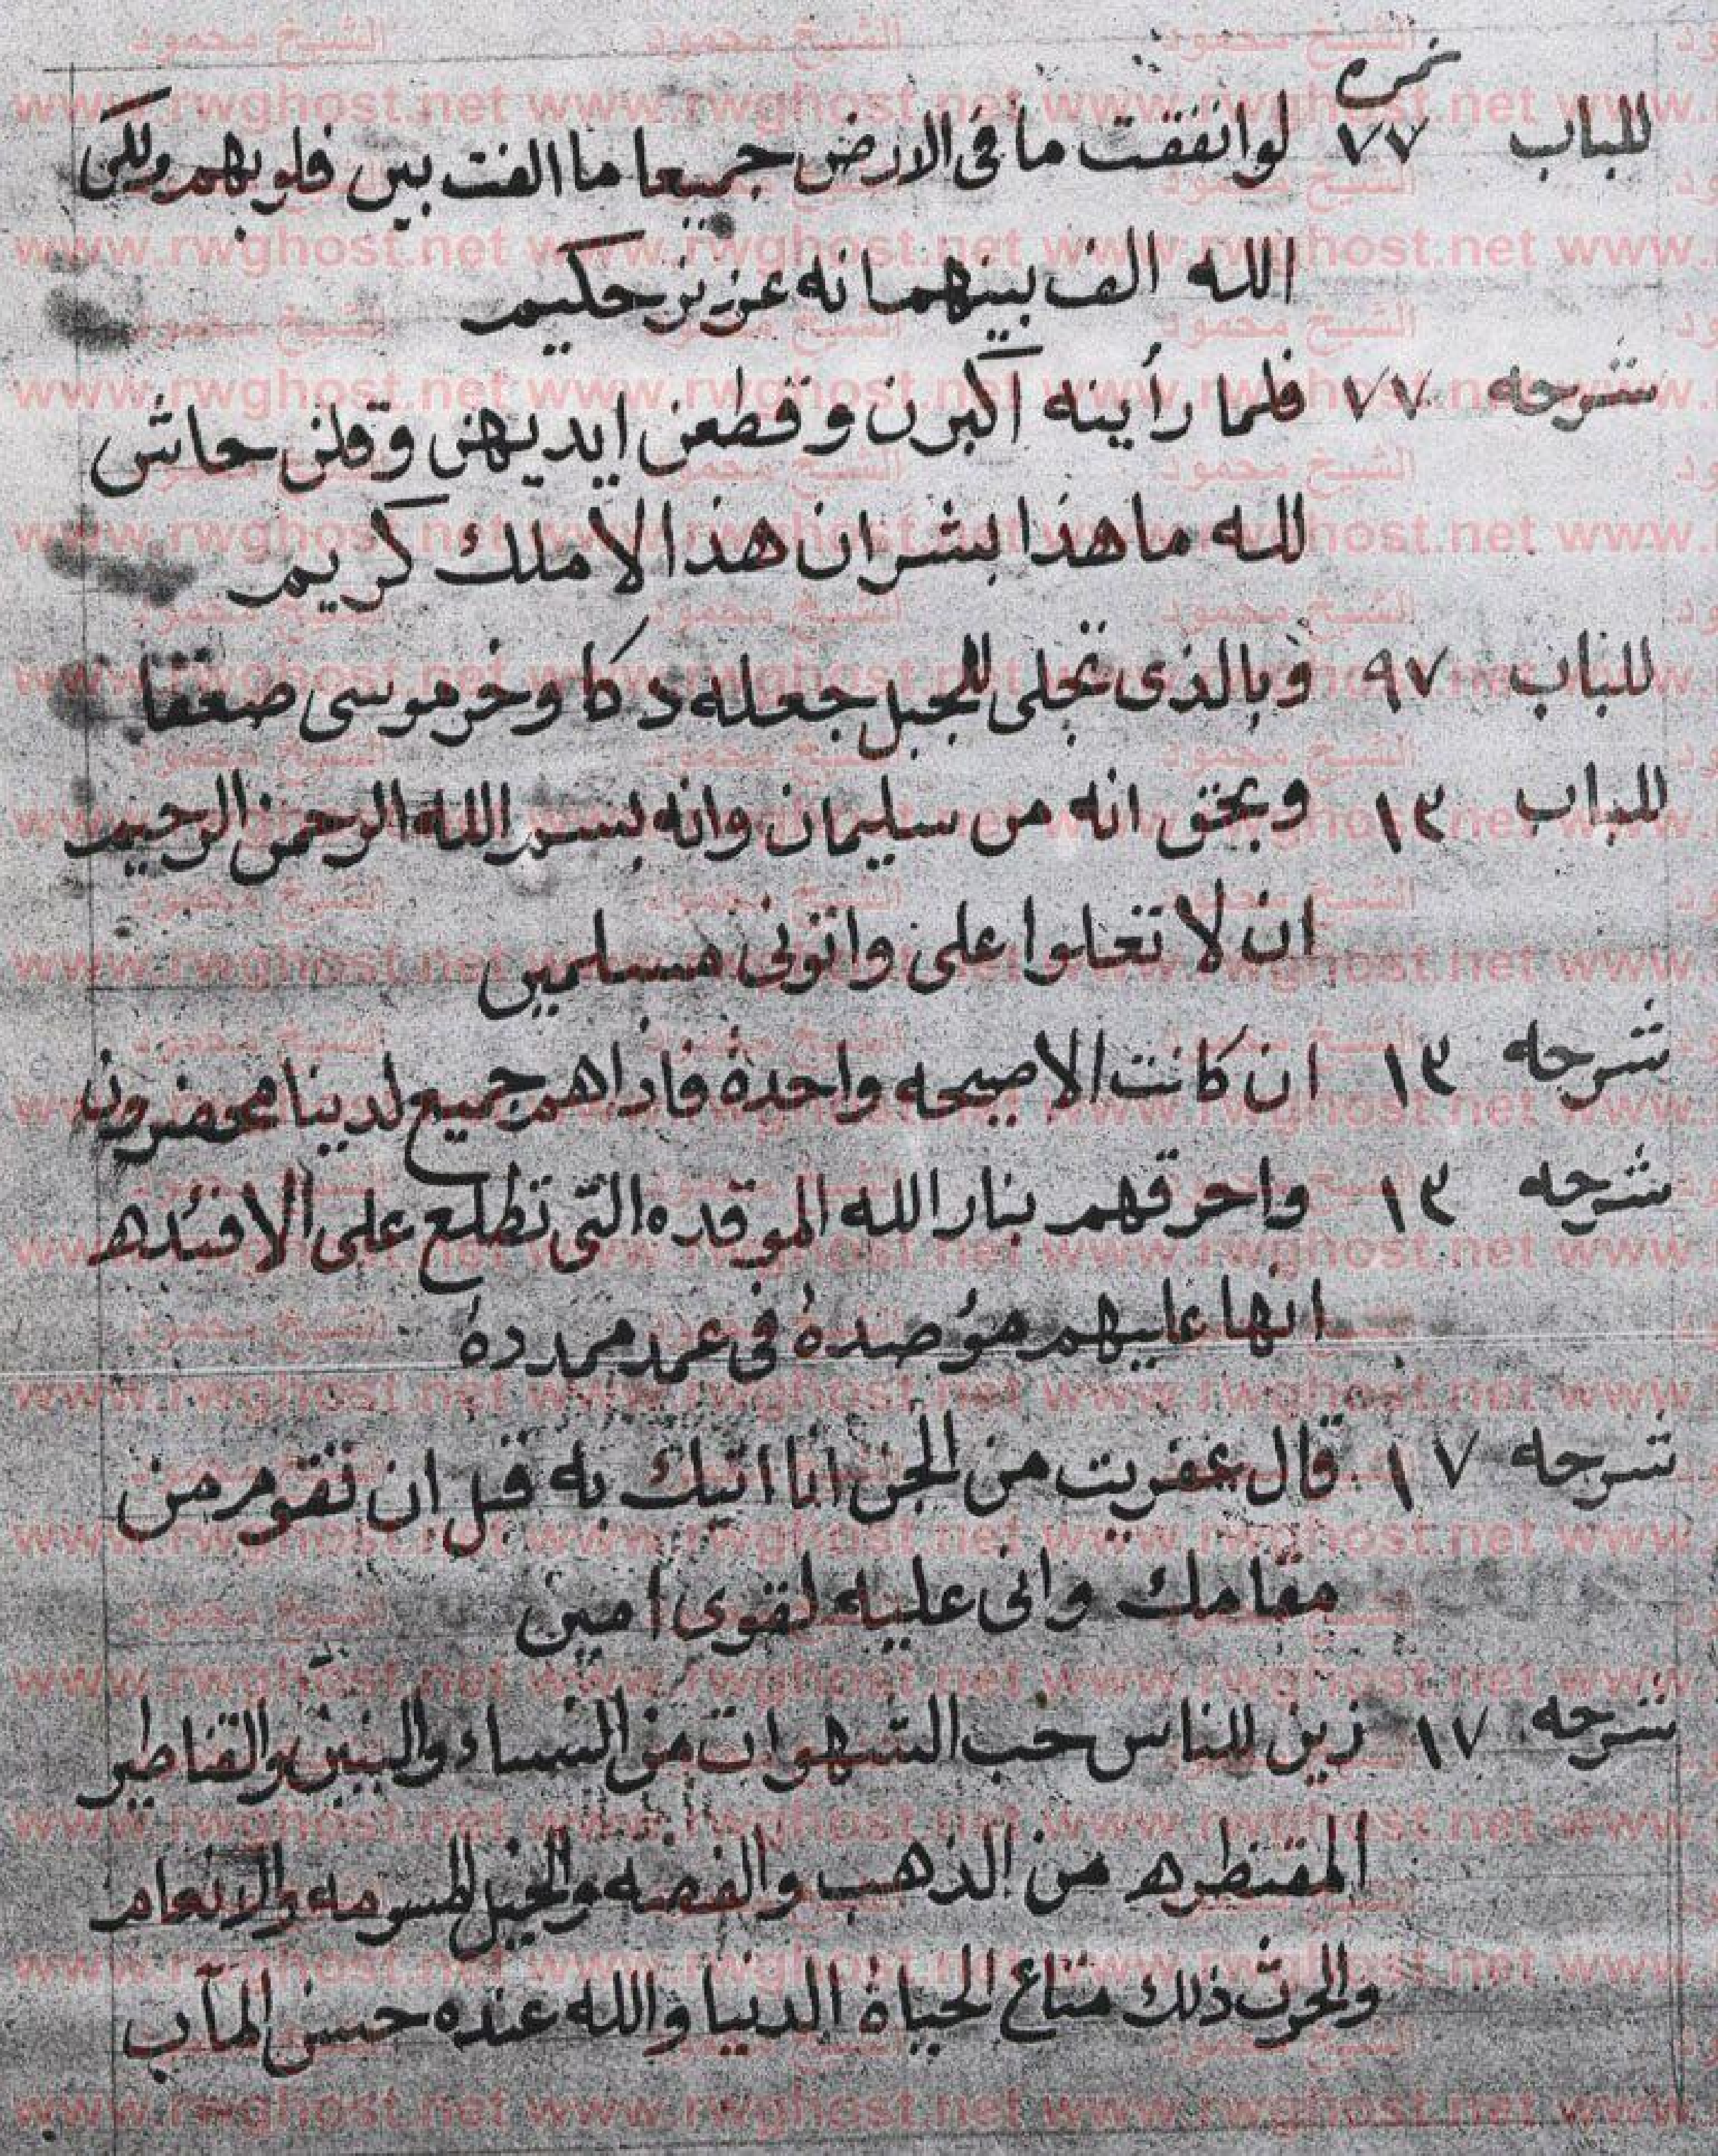 نمره
للباب ٧٧ لو انفقت ما فى الارض جميعا ما الفت بين قلوبهم ولكن
الله الف بينهم انه عزيز حكيم
شرحه ٧٧ فلما رأينه اكبرن وقطعن ايديهن وقلن حاش
لله ما هذا بشر ان هذا الا ملك كريم
للباب ٩٧ وبالذى تجلى للجبل جعله دكا وخر موسى صعقا
للباب ١٣ وبحق انه من سليمان وانه بسم الله الرحمن الرحيم
ان لا تعلوا على واتونى مسلمين
شرحه ١٣ ان كانت الا صيحه واحدة فاذا هم جميع لدينا محضرون
شرحه ١٣ واحرقهم بنار الله الموقده التى تطلع على الافئده
انها عليهم مؤصدة فى عمد ممددة
شرحه ١٧ قال عفريت من الجن انا اتيك به قبل ان تقوم من
مقامك وانى عليه لقوى امين
شرحه ١٧ زين للناس حب الشهوات من النساء والبنين والقناطير
المقنطره من الذهب والفضه والخيل المسومه والانعام
والحرث ذلك متاع الحياة الدنيا والله عنده حسن المآب
الشيخ محمود
www.rwghost.net